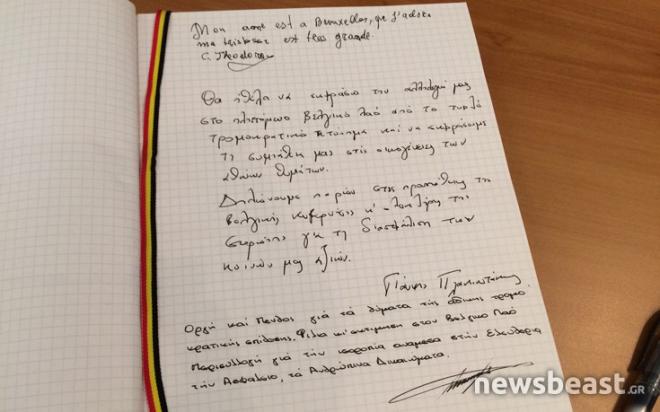 Mon ame est a Bruxelles, que j'adore
ma tristesse est tres grande.
Θα ήθελα να εκφράσω την αλληλεγγύη μας
στο πληττόμενο Βελγικό λαό από το τυφλό
τρομοκρατικό χτύπημα και να εκφράσουμε
τη συμπάθειά μας στις οικογένειες των
αθώων θυμάτων.
Δηλώνουμε παρών στις προσπάθειες της
βελγικής κυβέρνησης κ' της
Ευρώπης για τη διασφάλιση των
κοινών μας αξιών.
Γιάννης
Οργή καί Πένθος γιά τά θύματα τής άδικης τρομο-
κρατικής επίθεσης. Φιλία κι' εκτίμηση στον Βελγικό Λαό
Περισυλλογή γιά τήν ισορροπία ανάμεσα στήν Ελευθερία
τήν Ασφάλεια, τά Ανθρώπινα Δικαιώματα.
newsbeast.GR